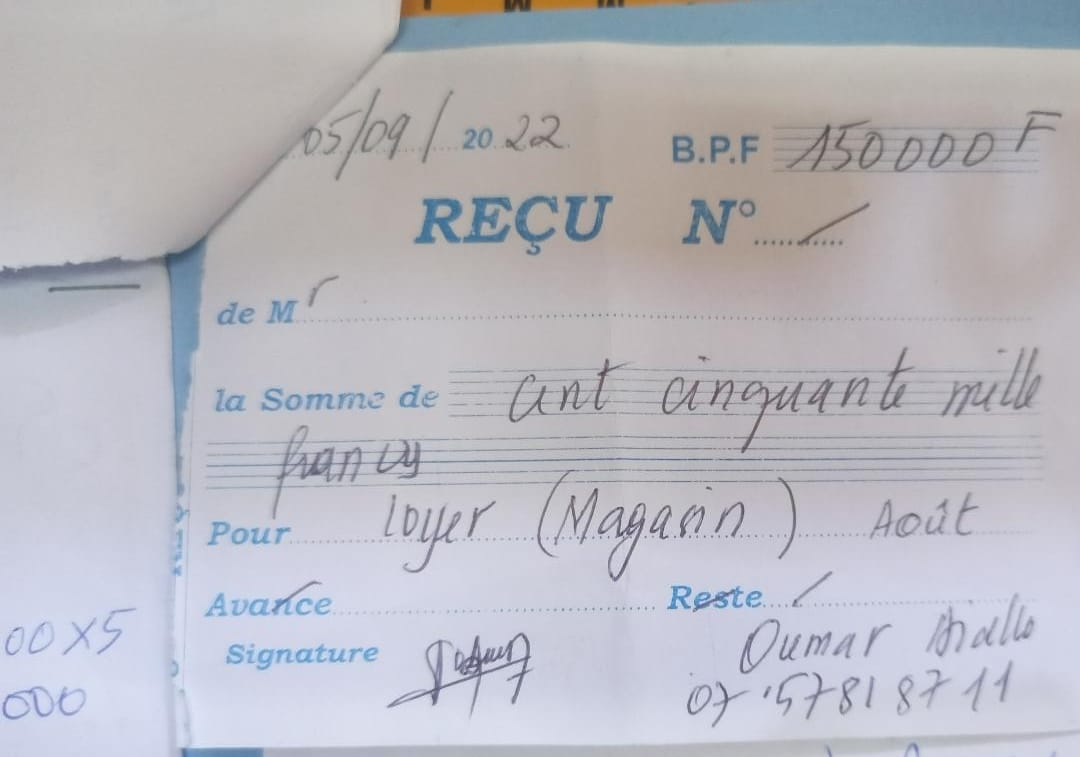 05/09/ 2022 B.P.F 150000 F
REÇU N°
de Mr
la Somme de cent cinquante mille
francs
Pour loyer (Magasin) Août
Avance Reste
Signature Oumar Diallo
07 57 81 87 11
00X5
000